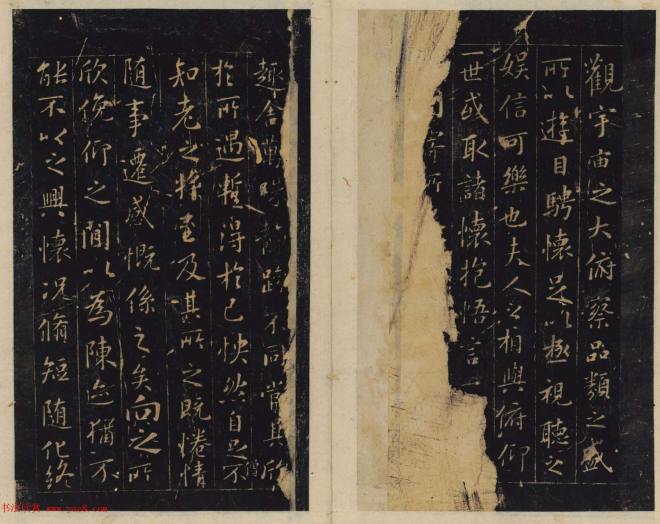 觀宇宙之大俯察品類之盛
所以遊目騁懷足以極視聽之
娛信可樂也夫人之相與俯仰
一世或取諸懷抱悟言一
寄所
趣舍萬殊靜躁不同當其欣
於所遇暫得於己怏然自足不
知老之將至及其所之既惓情
隨事遷感慨係之矣向之所
欣俛仰之間以為陳迹猶不
能不以之興懷況脩短隨化終
书法欣赏 www.yac8.com